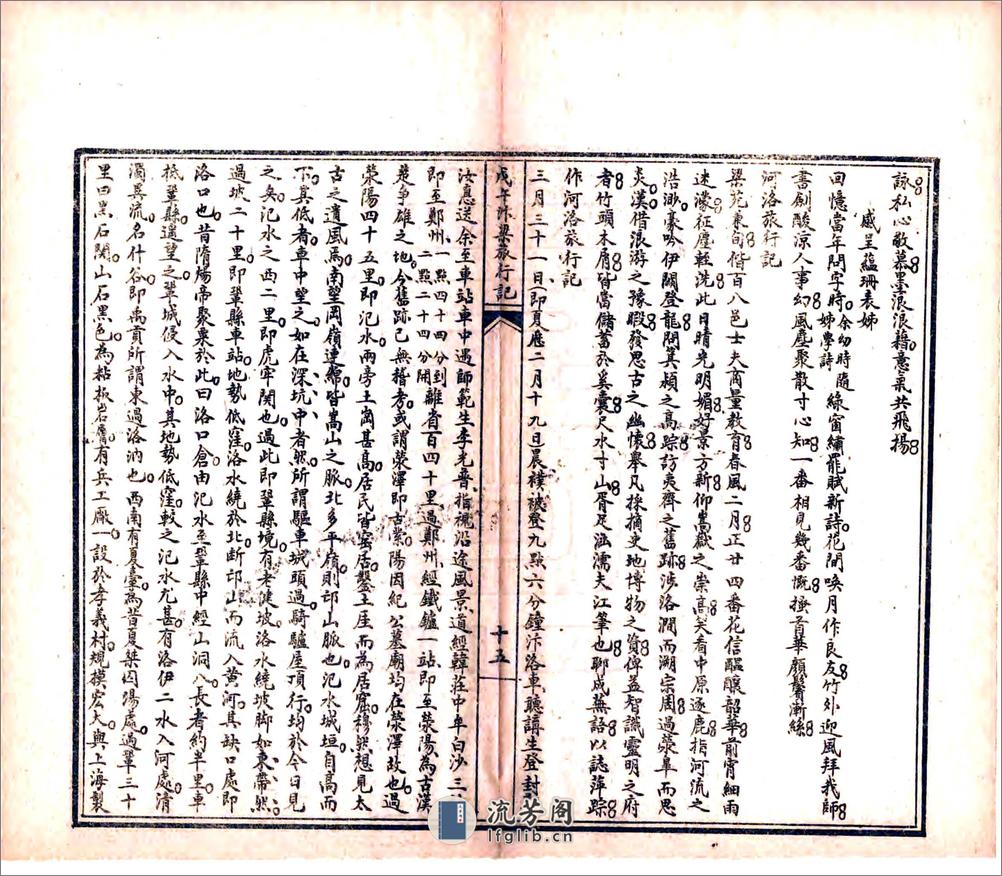 詠私心敬慕墨浪浪藉意氣共飛揚
感呈蘊珊表姊
回憶當年問字時余幼時隨姊學詩綠窗繡罷賦新詩花間喚月作良友竹外迎風拜我師
書劍酸涼人事幻風塵聚散寸心知一番相見幾番慨搔首華顛鬢漸絲
河洛旅行記
梁苑東旬偕百八邑士夫商量教育春風二月正廿四番花信醞釀韶華前宵細雨
迷濛征塵輕洗此日晴光明媚好景方新仰嵩嶽之崇高矣看中原逐鹿指河流之
浩渺豪吟伊闕登龍問箕頻之高踪訪夷齊之舊跡涉洛澗而溯宗周過滎阜而思
炎漢借浪游之豫暇發思古之幽懷舉凡採摘史地博物之資俾益智識靈明之府
者竹頭木屑皆當儲蓄於奚囊尺水寸山胥足涵濡夫江筆也聊成蕪語以誌萍踪
作河洛旅行記
三月三十一日即夏曆二月十九日晨襆被登九點六分鐘汴洛車聽講生登封
戊午汴梁旅行記
十五
汝惠送余至車站車中遇師範生李光晉指襯沿途風景道經韓莊中牟白沙三
即至鄭州一點四十四分到二點二十四分開離省百四十里過鄭州經鐵鑪一站即至滎陽為古漢
楚爭雄之地今舊跡已無稽考或謂滎澤即古紫陽因紀公墓廟均在滎澤故也過
滎陽四十五里即汜水兩旁土崗甚高居民皆窑居鑿土崖而為居窟穆然想見太
古之遺風焉南望岡嶺連綿皆嵩山之脈北多平嶺則邙山脈也汜水城垣自高而
下其低者車中望之如在深坑中者然所謂驅車城頭過騎驢屋頂行均於今日見
之矣汜水之西二里即虎牢關也過此即鞏縣境有老犍坡洛水繞坡脚如束帶然
過坡二十里即鞏縣車站地勢低窪洛水繞於北斷邙山而流入黃河其缺口處即
洛口也昔隋煬帝聚粟於此曰洛口倉由汜水至鞏縣中經山洞八長者約半里車
抵鞏縣遥望之鞏城侵入水中其地勢低窪較之汜水尤甚有洛伊二水入河處清
濁異流名什谷即禹貢所謂東過洛汭也西南有夏臺為昔夏桀囚湯處過鞏三十
里曰黑石關山石黑色為粘板岩層有兵工廠一設於孝義村規模宏大與上海製
流芳阁
lfglib.cn